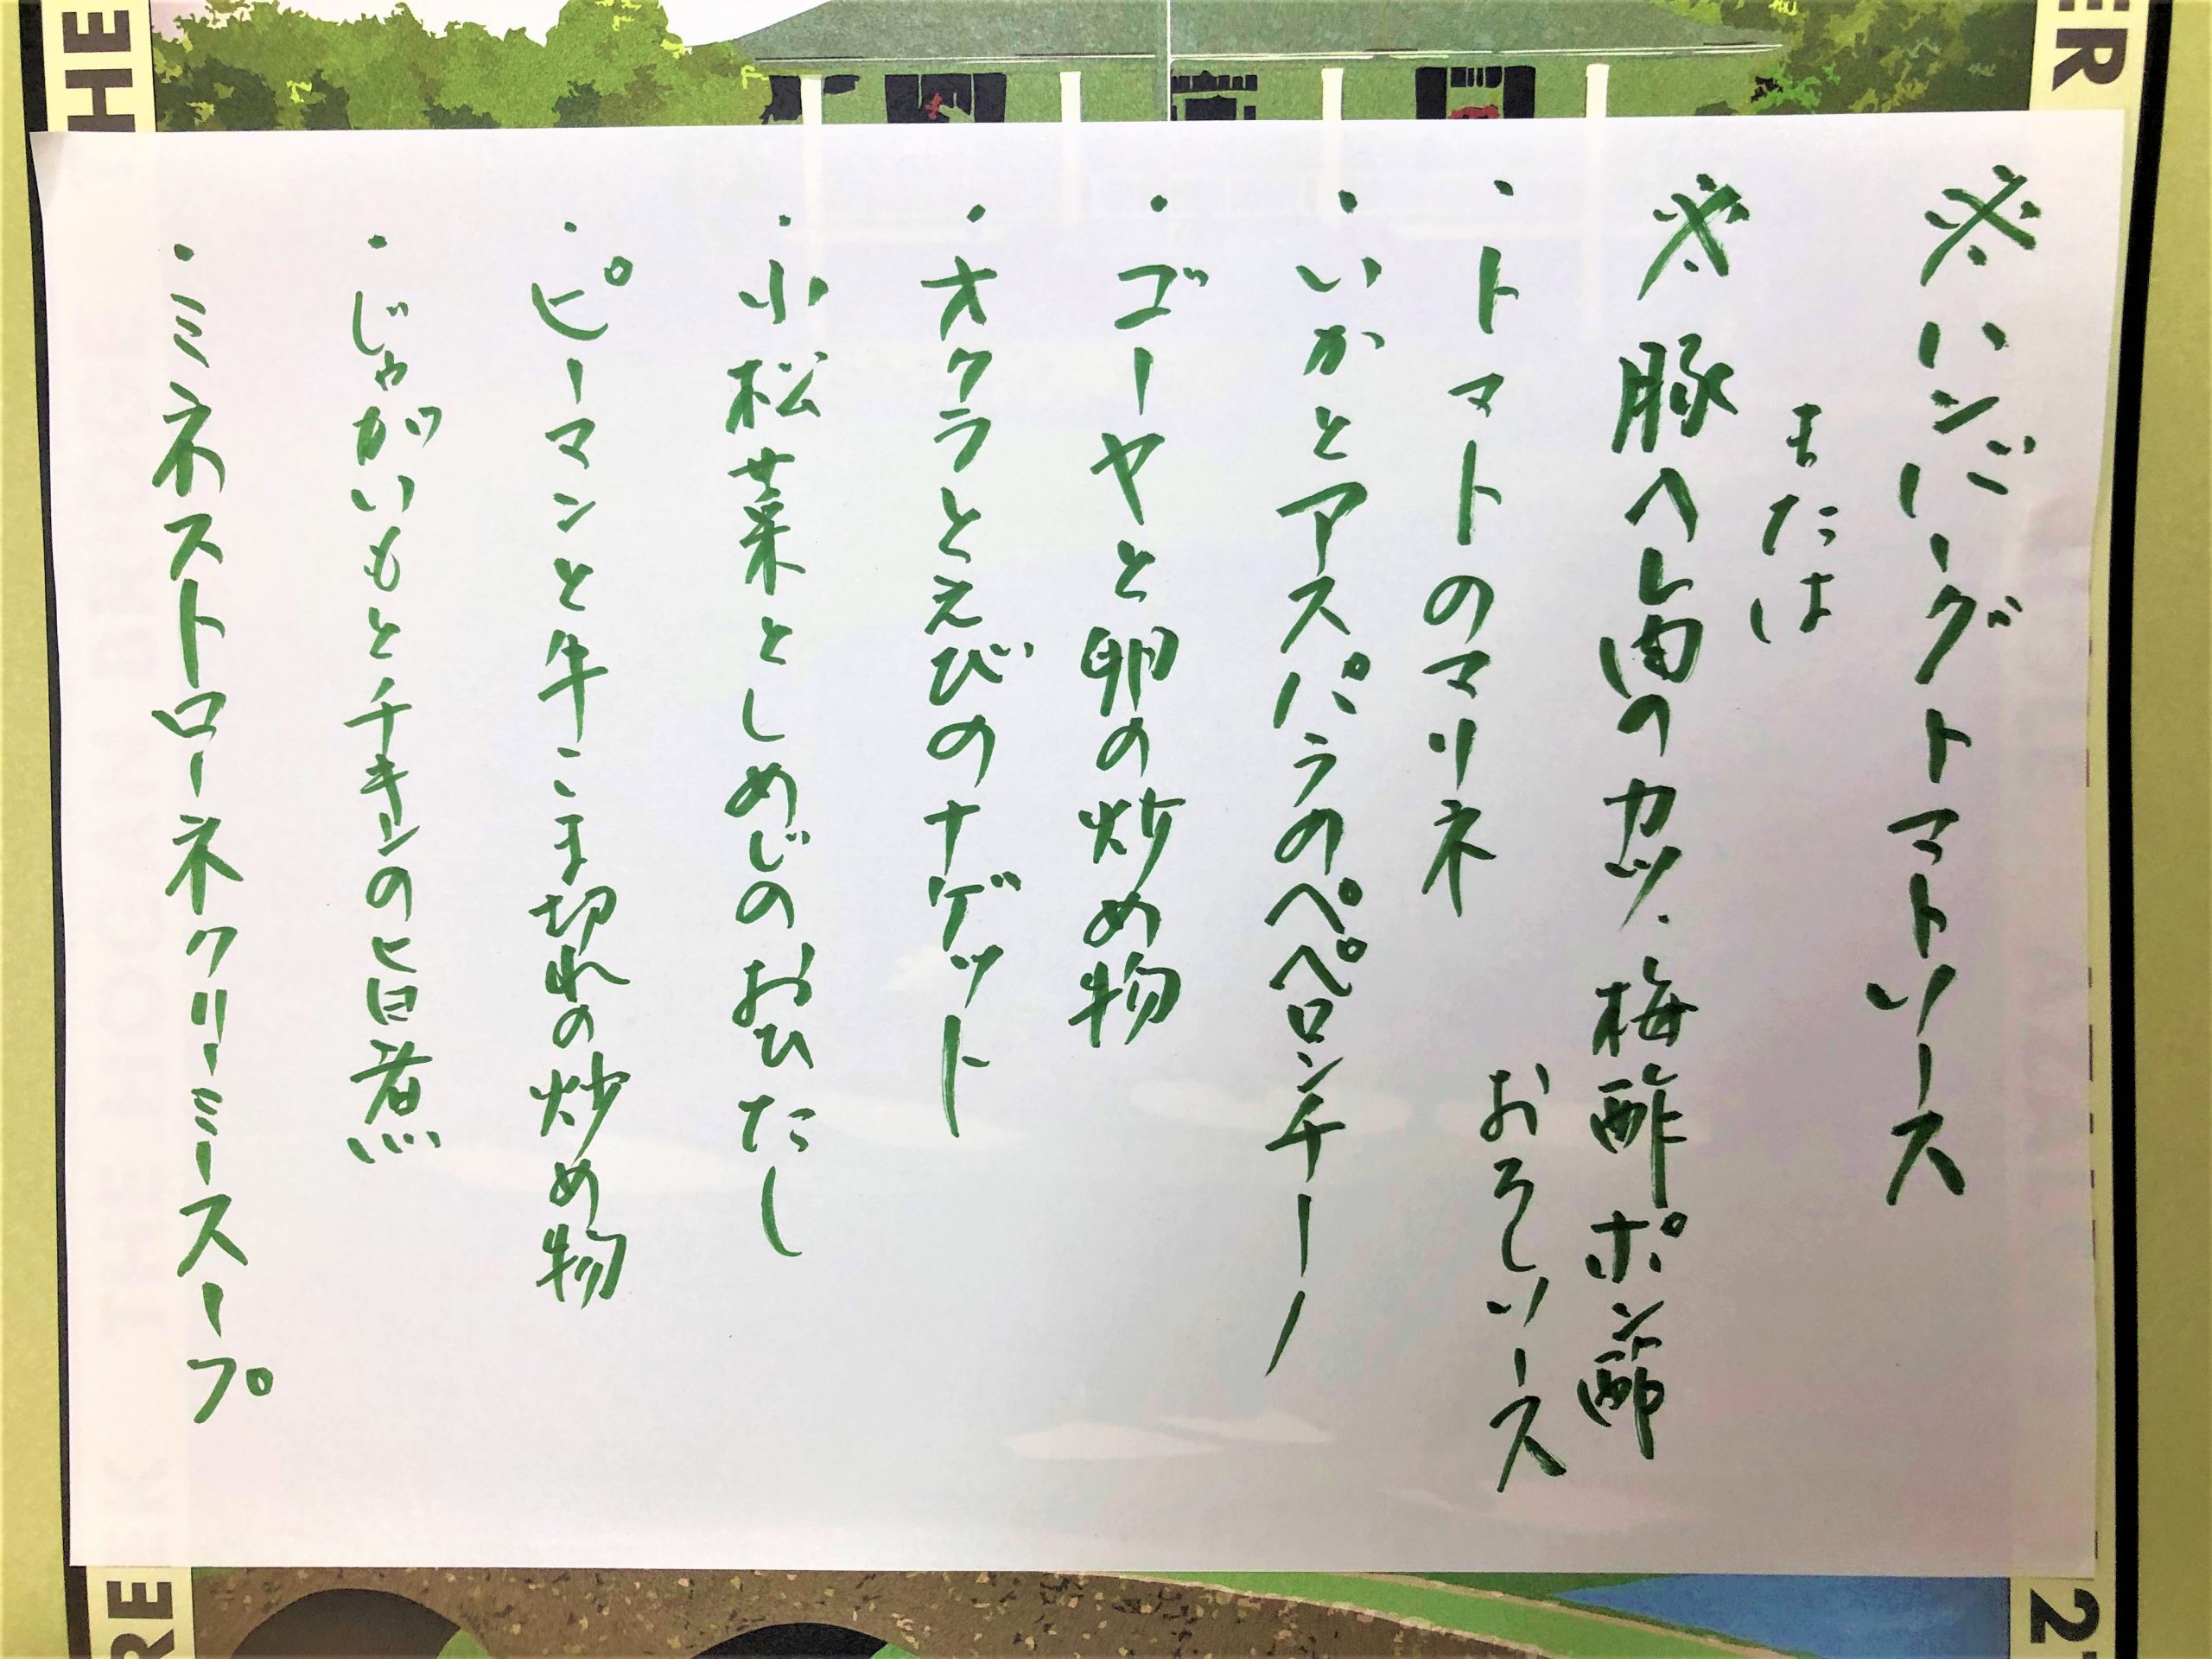 ※ハンバーグトマトソース
または
※豚ヘレ肉のカツ・梅酢ポン酢
おろしソース
・トマトのマリネ
・いかとアスパラのペペロンチーノ
・ゴーヤと卵の炒め物
・オクラとえびのナゲット
・小松菜としめじのおひたし
・ピーマンと牛こま切れの炒め物
・じゃがいもとチキンの旨煮
・ミネストローネクリーミースープ
THE
ER
RE